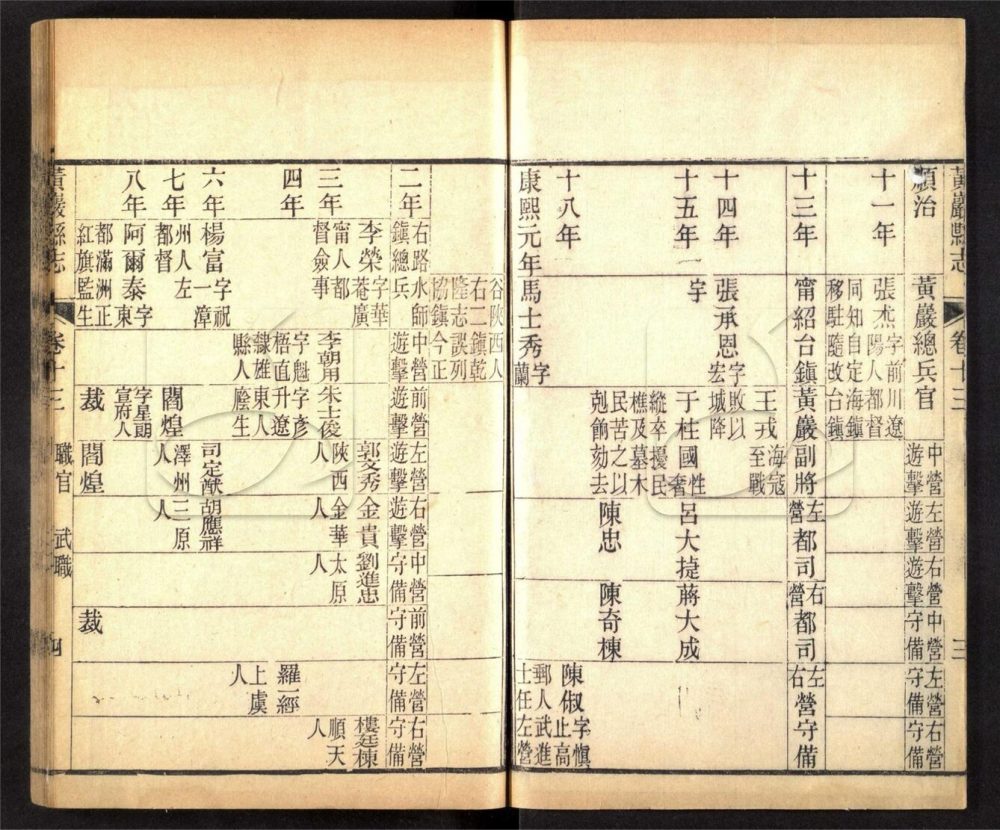 黃巖縣志 卷十三 三
順治 黃巖總兵官 中營遊擊 左營遊擊 右營遊擊 中營守備 左營守備 右營守備
十一年 張杰字前川遼陽人都督同知自定海鎮移駐隨改台鎮
十三年 甯紹台鎮黃巖副將 左營都司 右營都司 左右營守備
十四年 張承恩字宏宇 王戎海寇至戰敗以城降
十五年 于桂國性奢縱卒擾民樵及墓木民苦之以剋餉劾去 呂大捷 蔣大成
陳忠 陳奇棟
十八年 陳俶字愼止高郵人武進士任左營
康熙元年 馬士秀字蘭谷陝西人右二鎮乾隆志誤列協鎮今正
二年 右路水師鎮總兵 中營遊擊 前營遊擊 左營遊擊 右營遊擊 中營守備 前營守備 左營守備 右營守備
三年 李榮字華菴廣甯人都督僉事 李朝用字魁梧直隸雄縣人 朱士俊字彥升遼東人廕生 郭文秀陝西人 金貴金華人 劉進忠太原人 樓廷棟順天人
四年 羅一經上虞人
六年 楊富字祝一漳州人左都督 司定猷澤州人 胡應祥三原人
七年 閻煌字星朗宣府人
八年 阿爾泰字東都滿洲正紅旗監生 裁 閻煌 裁
黃巖縣志 卷十三 職官 武職 四